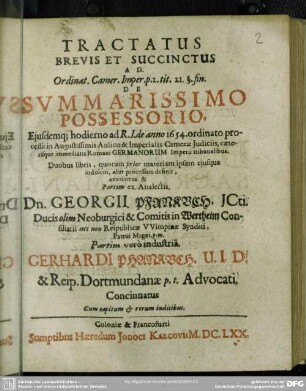 2
TRACTATUS
BREVIS ET SUCCINCTUS
AD
Ordinat. Camer. Imper. p. 2. tit. 21. §. fin.
DE
SVMMARISSIMO
POSSESSORIO,
Ejusdemq; hodierno ad R. I. de anno 1654. ordinato pro-
cessu in Augustissimis Aulico & Imperialis Cameræ Judiciis, cæte-
risque immediatis Romani GERMANORUM Imperii tribunalibus.
Duobus libris, quorum prior materiam ipsam ejusque
indolem, alter processum definit,
&
Partim ex Analectis,
Dn. GEORGII, PFANKVCH. JCti.
Ducis olim Neoburgici & Comitis in Wertheim Con-
siliarii nec non Reipublicæ VVimpinæ Syndici,
Patrui Magni, p. m.
Partim verò industriâ,
GERHARDI PHANKVCH. U. I. D.
& Reip. Dortmundanæ p. t. Advocati,
Concinnatus
Cum capitum & rerum indicibus.
Coloniæ & Francofurti
Sumptibus Hæredum JODOCI KALCOVII M. DC. LXX.